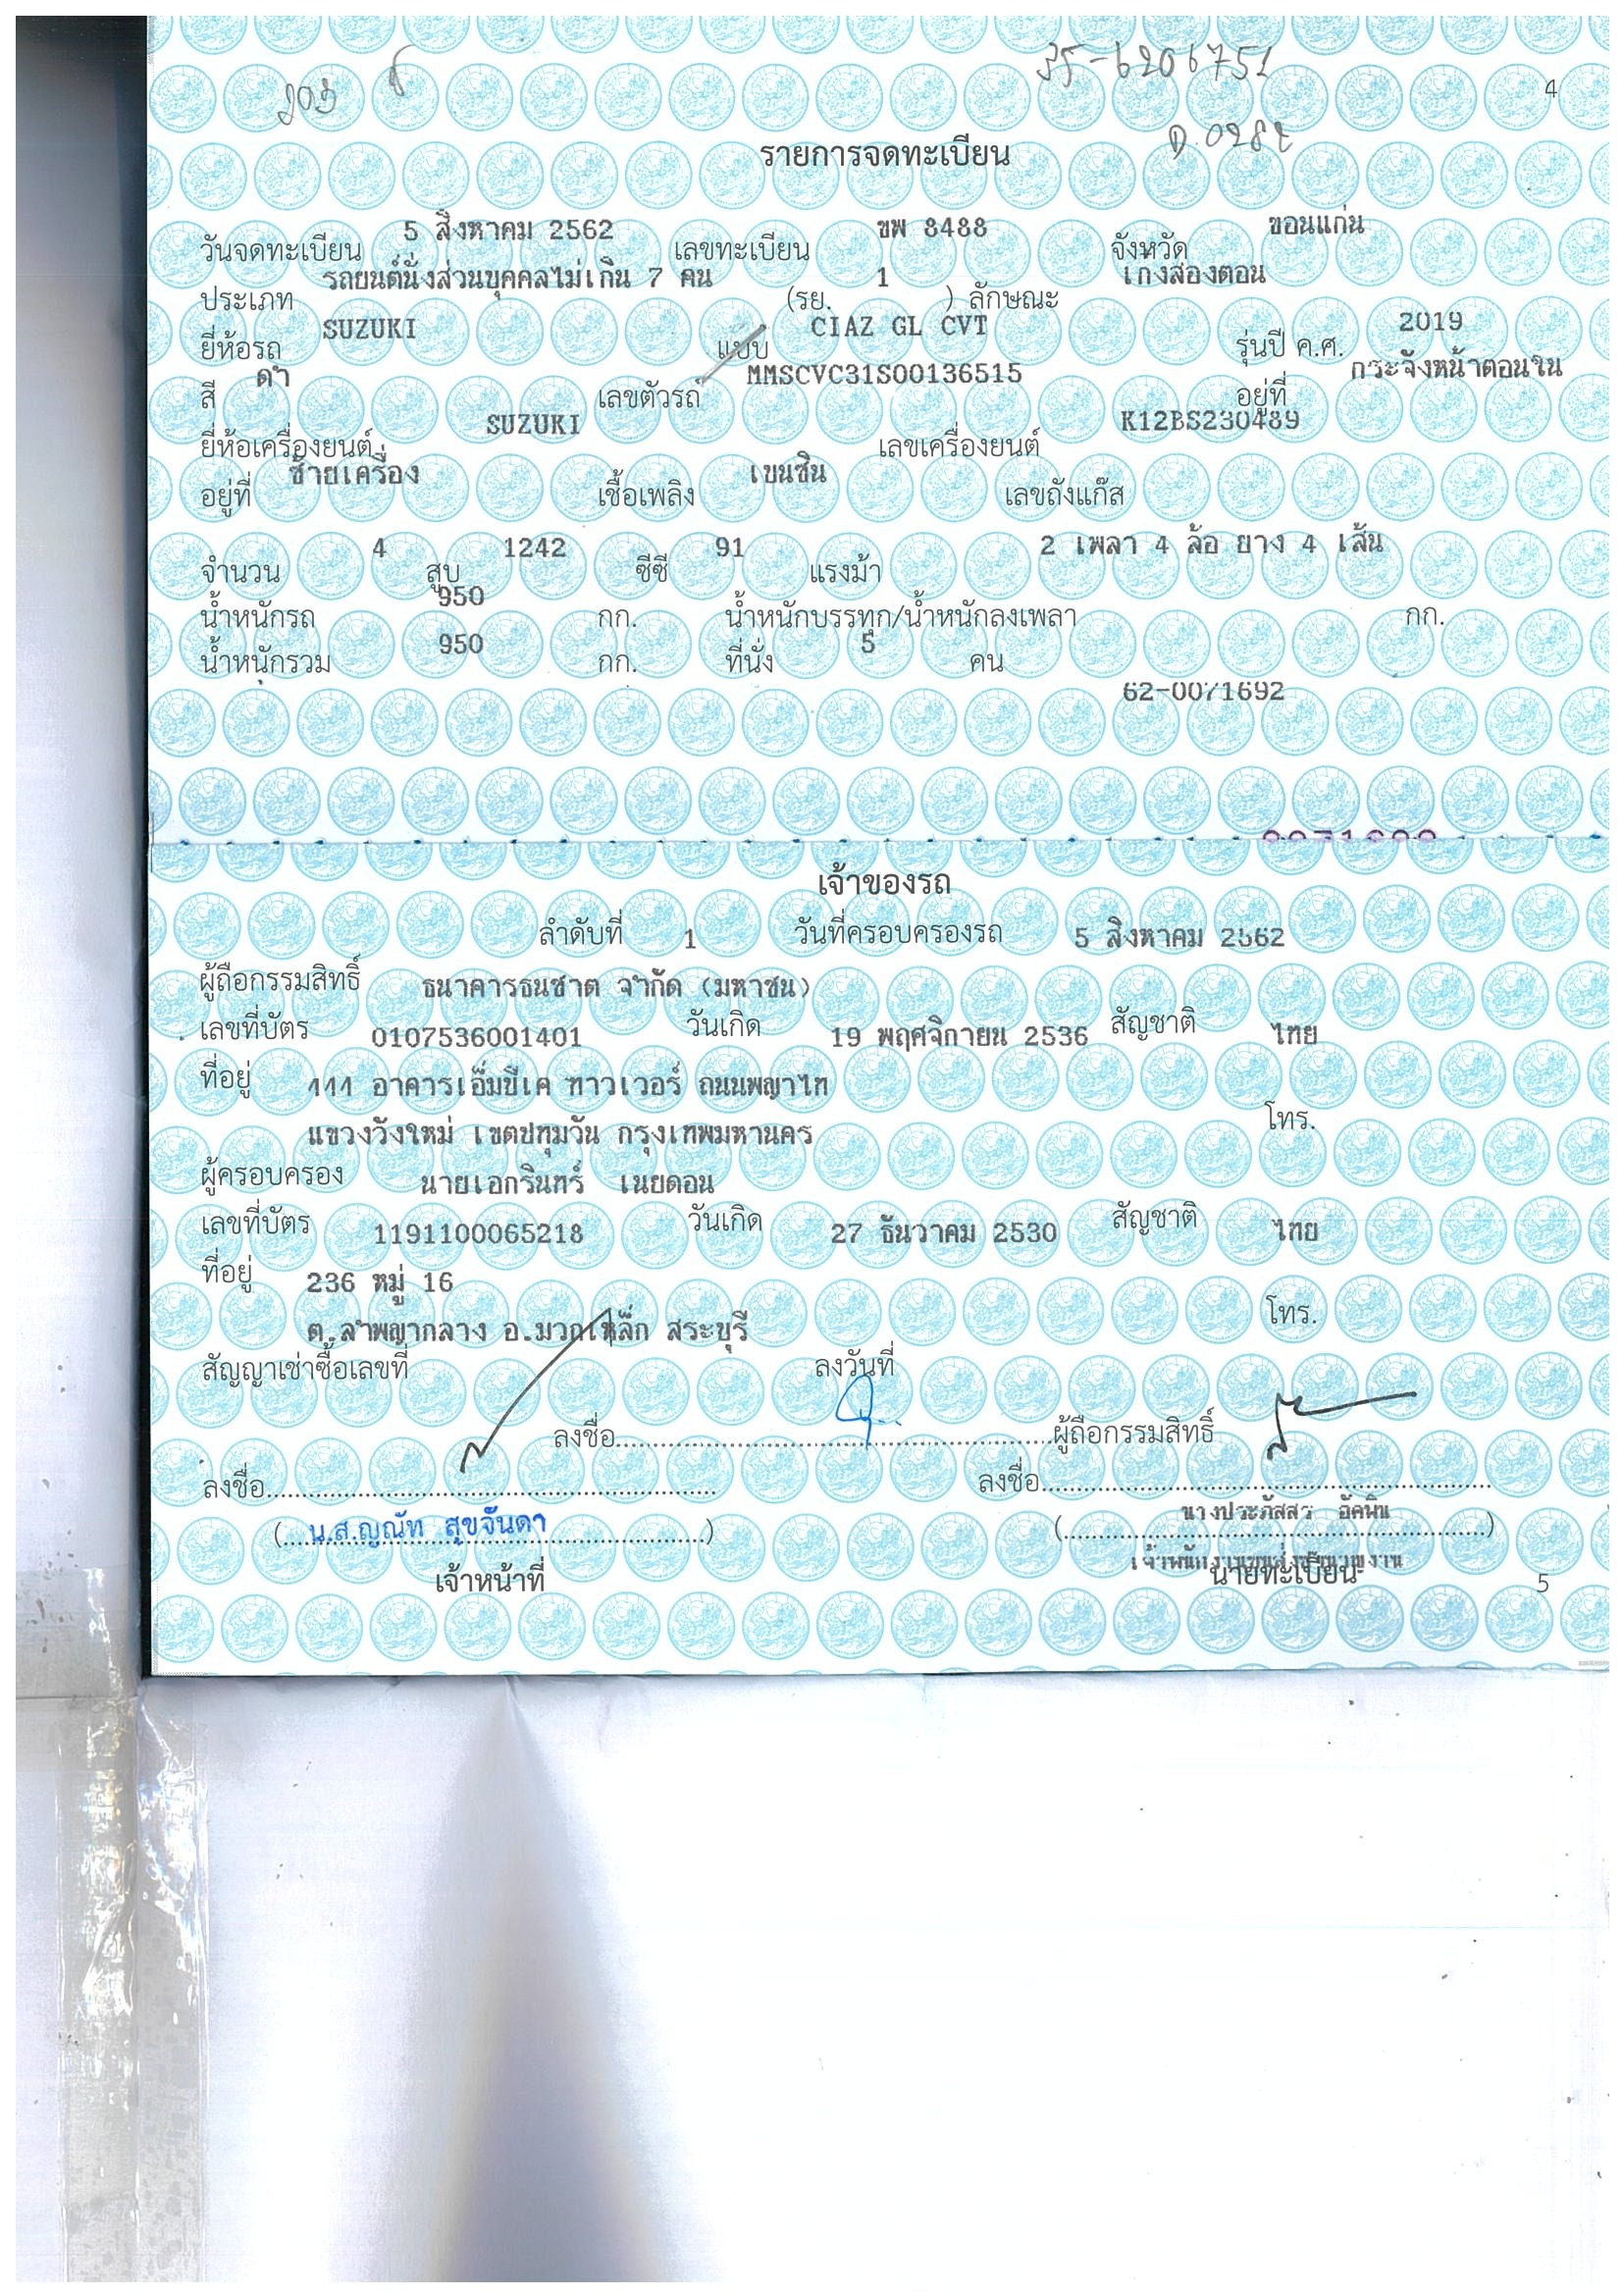 35-6206751
4
D.0282
รายการจดทะเบียน
วันจดทะเบียน 5 สิงหาคม 2562 เลขทะเบียน ขพ 8488 จังหวัด ขอนแก่น
ประเภท รถยนต์นั่งส่วนบุคคลไม่เกิน 7 คน (รย. 1 ) ลักษณะ เก๋งสองตอน
ยี่ห้อรถ SUZUKI แบบ CIAZ GL CVT รุ่นปี ค.ศ. 2019
สี ดำ เลขตัวรถ MMSCVC31S00136515 อยู่ที่ กระจังหน้าตอนใน
ยี่ห้อเครื่องยนต์ SUZUKI เลขเครื่องยนต์ K12BS230489
อยู่ที่ ซ้ายเครื่อง เชื้อเพลิง เบนซิน เลขถังแก๊ส
จำนวน 4 สูบ 1242 ซีซี 91 แรงม้า 2 เพลา 4 ล้อ ยาง 4 เส้น
น้ำหนักรถ 950 กก. น้ำหนักบรรทุก/น้ำหนักลงเพลา กก.
น้ำหนักรวม 950 กก. ที่นั่ง 5 คน
62-0071692
เจ้าของรถ
ลำดับที่ 1 วันที่ครอบครองรถ 5 สิงหาคม 2562
ผู้ถือกรรมสิทธิ์ ธนาคารธนชาต จำกัด (มหาชน)
เลขที่บัตร 0107536001401 วันเกิด 19 พฤศจิกายน 2536 สัญชาติ ไทย
ที่อยู่ 444 อาคารเอ็มบีเค ทาวเวอร์ ถนนพญาไท
แขวงวังใหม่ เขตปทุมวัน กรุงเทพมหานคร โทร.
ผู้ครอบครอง นายเอกรินทร์ เนยดอน
เลขที่บัตร 1191100065218 วันเกิด 27 ธันวาคม 2530 สัญชาติ ไทย
ที่อยู่ 236 หมู่ 16
ต.ลำพญากลาง อ.มวกเหล็ก สระบุรี โทร.
สัญญาเช่าซื้อเลขที่ ลงวันที่
ลงชื่อ ผู้ถือกรรมสิทธิ์
ลงชื่อ ลงชื่อ
(น.ส.ญณัท สุขจันดา) (นางประภัสสร อัคพิน)
เจ้าพนักงานขนส่งชำนาญงาน
เจ้าหน้าที่ นายทะเบียน
5